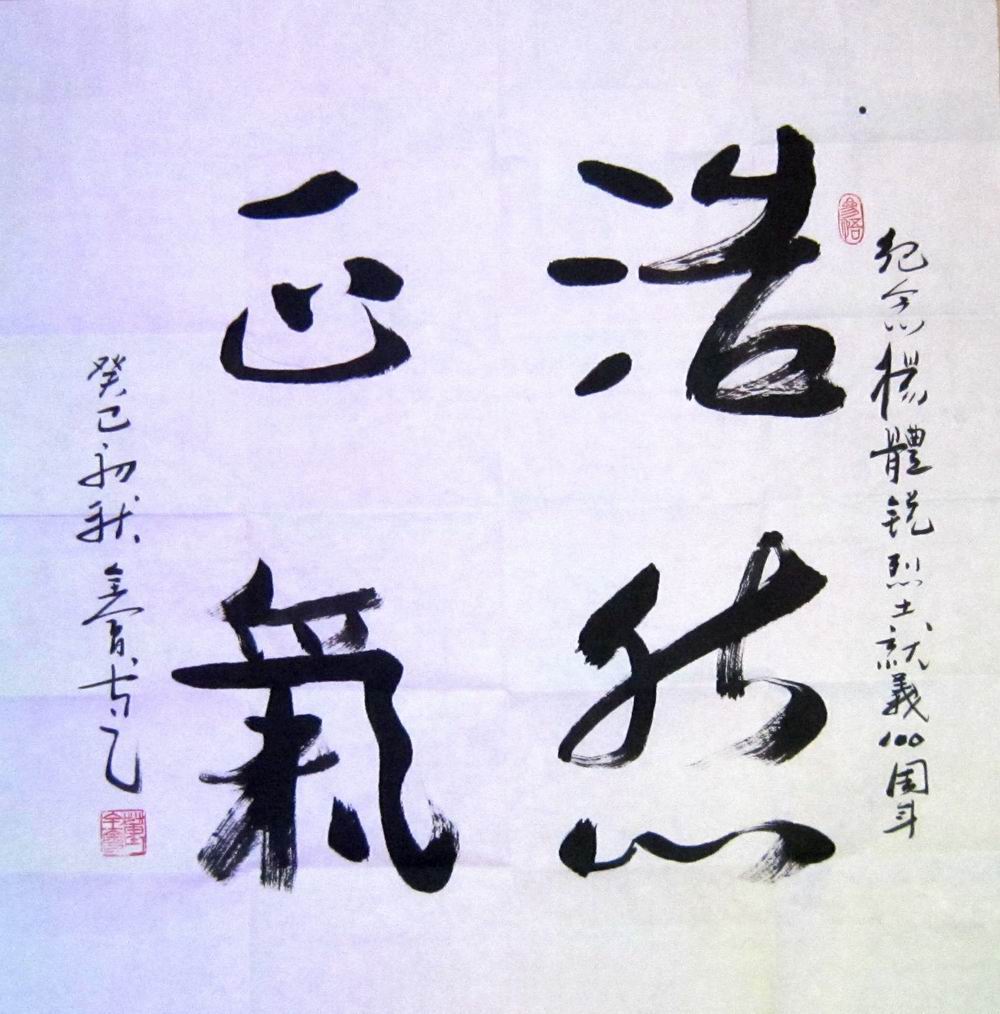 纪念楊體锐烈士就義100周年
浩然
正氣
癸巳初秋